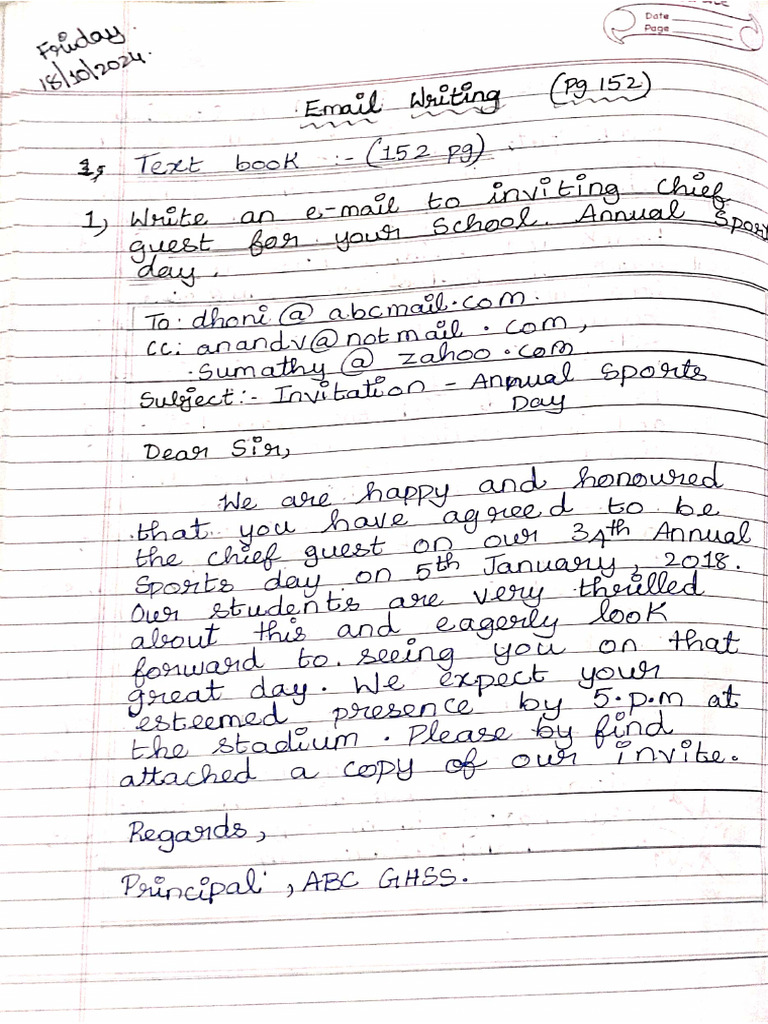 Date
Page
Friday
18/10/2024.
Email Writing (Pg 152)
1, Text book :- (152 pg)
1, Write an e-mail to inviting chief
guest for your School. Annual Sport
day.
To: dhoni@abcmail.com.
CC: anandv@notmail.com,
Sumathy@zahoo.com
Subject:- Invitation - Annual Sports
Day
Dear Sir,
We are happy and honoured
that you have agreed to be
the chief guest on our 34th Annual
Sports day on 5th January, 2018.
Our students are very thrilled
about this and eagerly look
forward to seeing you on that
great day. We expect your
esteemed presence by 5.p.m at
the stadium. Please by find
attached a copy of our invite.
Regards,
Principal, ABC GHSS.